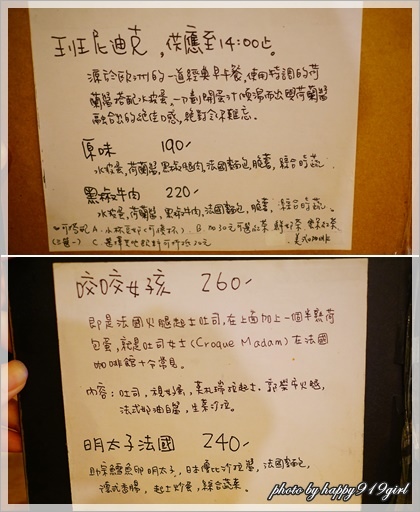 班尼迪克，供應至14:00止。
源於歐洲的一道經典早午餐，使用特調的荷
蘭醬搭配水波蛋，一刀劃開蛋汁傾瀉而出與荷蘭醬
融合出的絕佳口感，絕對令人難忘。
原味 190/
水波蛋，荷蘭醬，黑椒腿肉，法國麵包，脆薯，綜合時蔬
黑椒牛肉 220/
水波蛋，荷蘭醬，黑椒牛肉，法國麵包，脆薯，綜合時蔬。
B.加30元可選冰茶
(三選一) C.選擇其他飲料可折抵30元 美式咖啡
咬咬女孩 260/
即是法國火腿起士吐司，在上面加上一個半熟荷
包蛋，就是吐司女士(Croque Madam)在法國
咖啡館十分常見。
內容：吐司，裸雞蛋，莫札瑞拉起士，
法式奶油白醬，生菜沙拉。
明太子法國 240/
明太子，日本優沙拉醬，法國麵包，
德式香腸，起士炒蛋，綜合蔬菜。
photo by happy919girl